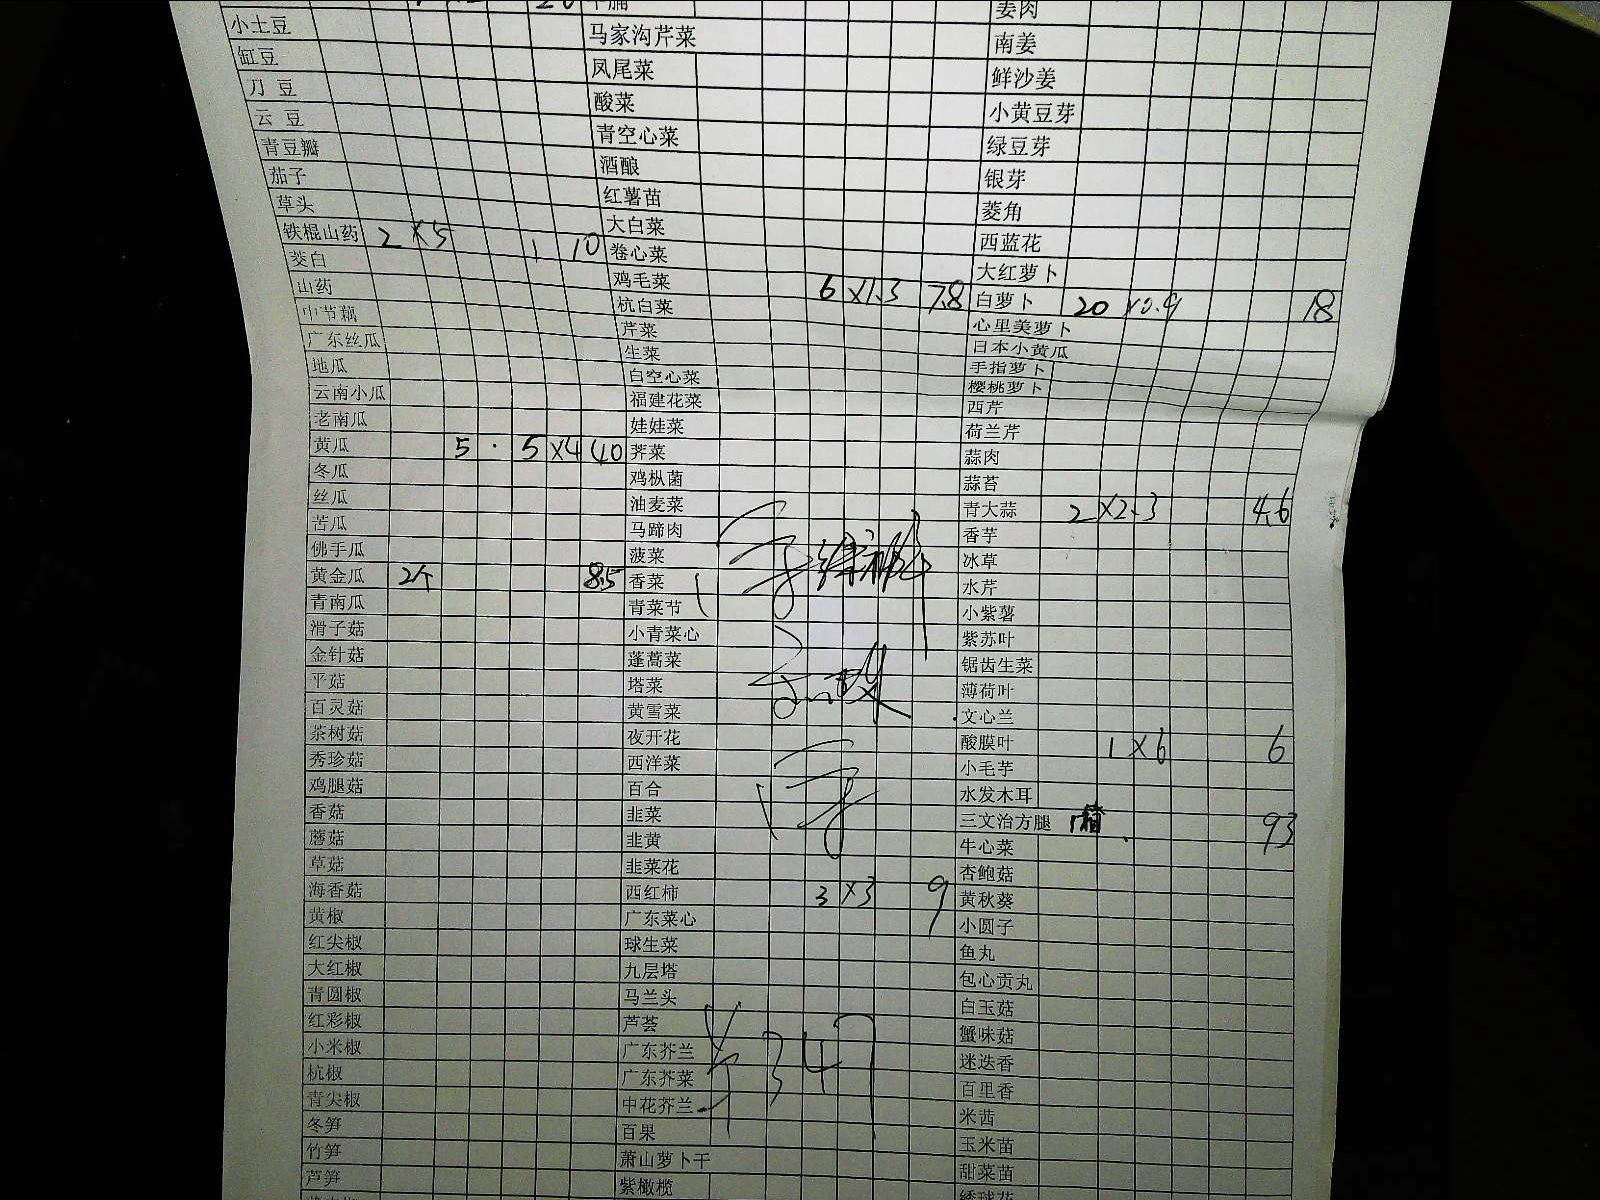 姜肉
小土豆 马家沟芹菜 南姜
豇豆 凤尾菜 鲜沙姜
刀豆 酸菜 小黄豆芽
云豆 青空心菜 绿豆芽
青豆瓣 酒酿 银芽
茄子 红薯苗 菱角
草头 大白菜 西蓝花
铁棍山药 2×5 1 10 卷心菜 大红萝卜
茭白 鸡毛菜 6×1.3 7.8 白萝卜 20×0.9 18
山药 杭白菜 心里美萝卜
中节藕 芹菜 日本小黄瓜
广东丝瓜 生菜 手指萝卜
地瓜 白空心菜 樱桃萝卜
云南小瓜 福建花菜 西芹
老南瓜 娃娃菜 荷兰芹
黄瓜 5·5×4 40 荠菜 蒜肉
冬瓜 鸡枞菌 蒜苔
丝瓜 油麦菜 青大蒜 2×2.3 4.6
苦瓜 马蹄肉 香芋
佛手瓜 菠菜 冰草
黄金瓜 2个 8.5 香菜 水芹
青南瓜 青菜节 小紫薯
滑子菇 小青菜心 紫苏叶
金针菇 蓬蒿菜 锯齿生菜
平菇 塔菜 薄荷叶
百灵菇 黄雪菜 文心兰
茶树菇 夜开花 酸膜叶 1×6 6
秀珍菇 西洋菜 小毛芋
鸡腿菇 百合 水发木耳
香菇 韭菜 三文治方腿 1箱 93
蘑菇 韭黄 牛心菜
草菇 韭菜花 杏鲍菇
海香菇 西红柿 3×3 9 黄秋葵
黄椒 广东菜心 小圆子
红尖椒 球生菜 鱼丸
大红椒 九层塔 包心贡丸
青圆椒 马兰头 白玉菇
红彩椒 芦荟 蟹味菇
小米椒 广东芥兰 347 迷迭香
杭椒 广东芥菜 百里香
青尖椒 中花芥兰 米茜
冬笋 百果 玉米苗
竹笋 萧山萝卜干 甜菜苗
芦笋 紫橄榄